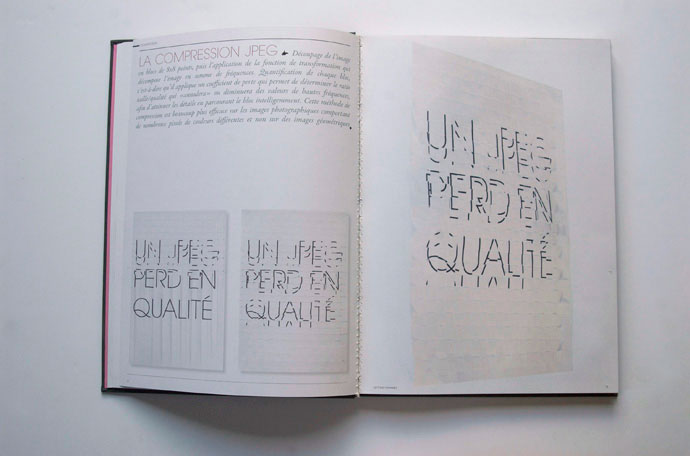 LA COMPRESSION JPEG Découpage de l'image
en blocs de 8x8 points, puis l'application de la fonction de transformation qui
décompose l'image en somme de fréquences. Quantification de chaque bloc,
c'est-à-dire qu'il applique un coefficient de perte qui permet de déterminer le ratio
taille/qualité qui «annulera» ou diminuera des valeurs de hautes fréquences,
afin d'atténuer les détails en parcourant le bloc intelligemment. Cette méthode de
compression est beaucoup plus efficace sur les images photographiques comportant
de nombreux pixels de couleurs différentes et non sur des images géométriques.
UN JPEG
PERD EN
QUALITÉ
UN JPEG
PERD EN
QUALITÉ
UN JPEG
PERD EN
QUALITÉ